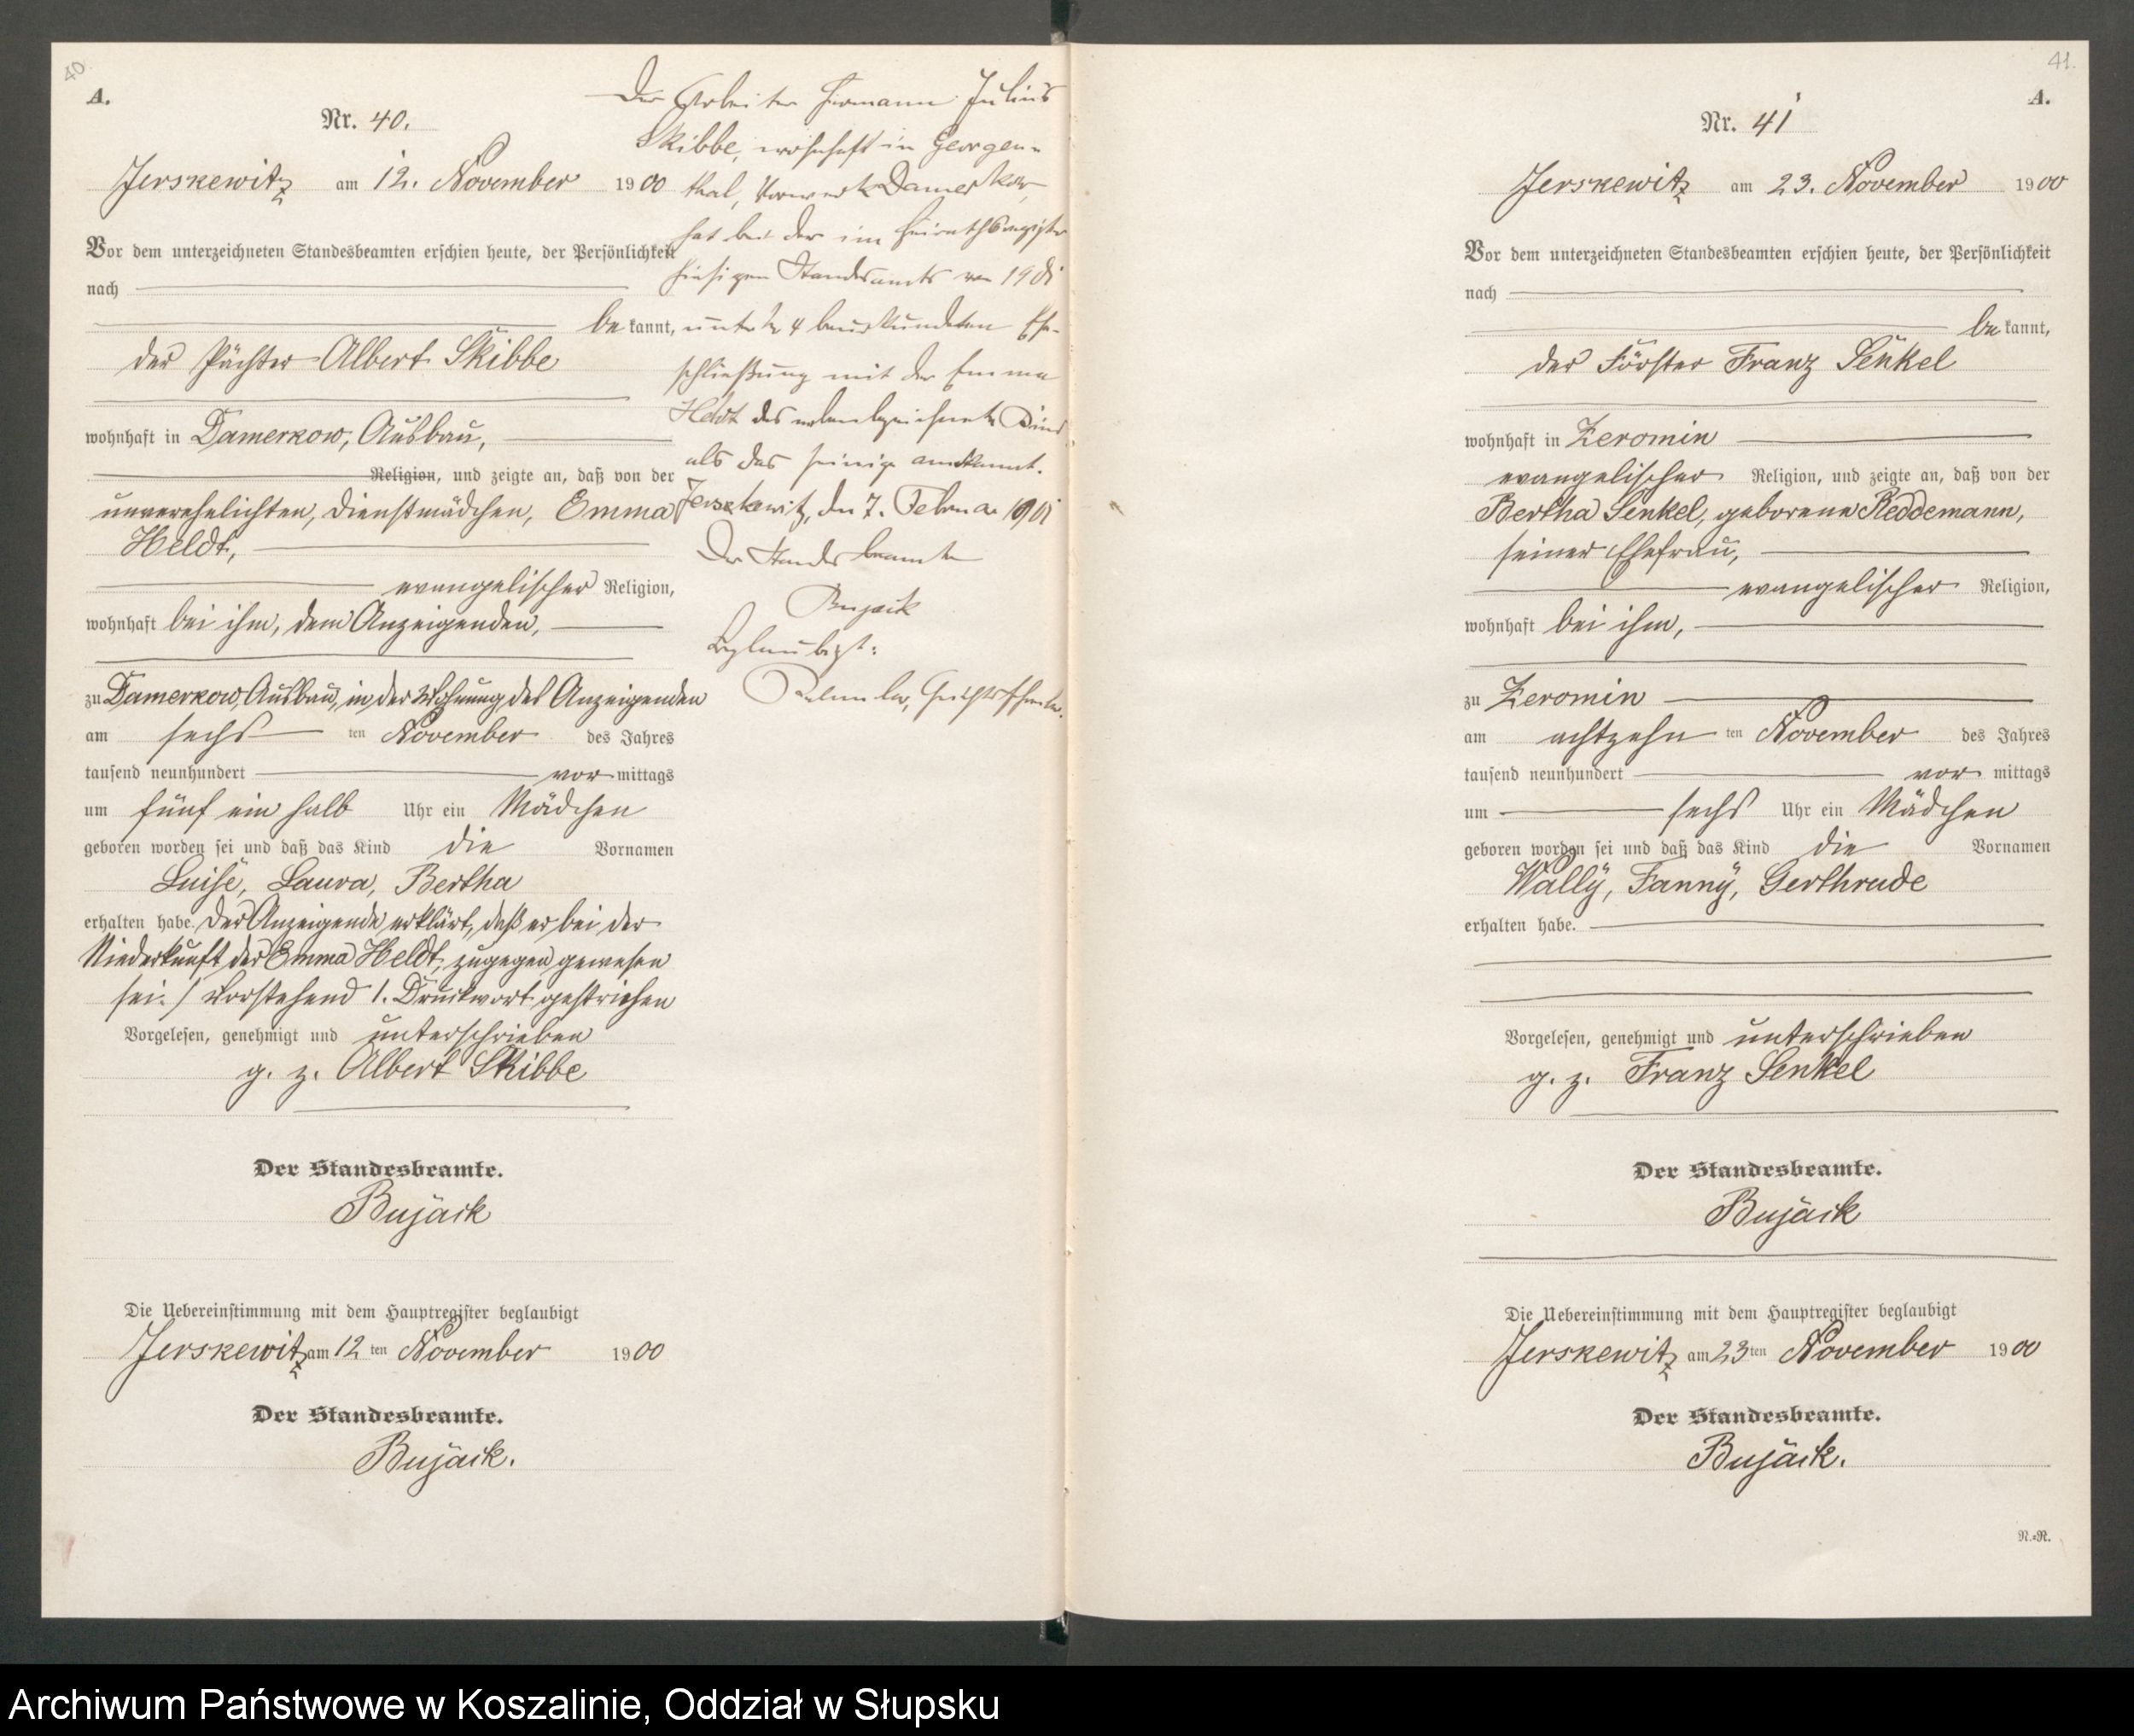 40
A.
Nr. 40.
Jerskewitz am 12. November 1900
Vor dem unterzeichneten Standesbeamten erschien heute, der Persönlichkeit
nach
be kannt,
der Pächter Albert Skibbe
wohnhaft in Damerkow, Ausbau,
Religion, und zeigte an, daß von der
unverehelichten, Dienstmädchen, Emma
Heldt,
evangelischer Religion,
wohnhaft bei ihm, dem Anzeigenden,
zu Damerkow, Ausbau, in der Wohnung des Anzeigenden
am sechs ten November des Jahres
tausend neunhundert vor mittags
um fünf ein halb Uhr ein Mädchen
geboren worden sei und daß das Kind die Vornamen
Luise, Laura, Bertha
erhalten habe. Der Anzeigende erklärt, daß er bei der
Niederkunft der Emma Heldt, zugegen gewesen
sei. / Vorstehend 1. Druckwort gestrichen
Vorgelesen, genehmigt und unterschrieben
g. z. Albert Skibbe
Der Standesbeamte.
Bujack
Die Uebereinstimmung mit dem Hauptregister beglaubigt
Jerskewitz am 12 ten November 1900
Der Standesbeamte.
Bujack.
Der Arbeiter Hermann Julius
Skibbe, wohnhaft in Georgen-
thal, Vorwerk Damerkow,
hat bei der im Heirathsregister
hiesigen Standesamts von 1901
unter Nr 4 beurkundeten Ehe-
schließung mit der Emma
Heldt das nebenbezeichnete Kind
als das seinige anerkannt.
Jerskewitz, den 7. Februar 1901
Der Standesbeamte
Bujack
Beglaubigt:
Gerichtsschreiber.
41.
A.
Nr. 41
Jerskewitz am 23. November 1900
Vor dem unterzeichneten Standesbeamten erschien heute, der Persönlichkeit
nach
be kannt,
der Förster Franz Senkel
wohnhaft in Zeromin
evangelischer Religion, und zeigte an, daß von der
Bertha Senkel, geborene Reddemann,
seiner Ehefrau,
evangelischer Religion,
wohnhaft bei ihm,
zu Zeromin
am achtzehn ten November des Jahres
tausend neunhundert vor mittags
um sechs Uhr ein Mädchen
geboren worden sei und daß das Kind die Vornamen
Wally, Fanny, Gerthrude
erhalten habe.
Vorgelesen, genehmigt und unterschrieben
g. z. Franz Senkel
Der Standesbeamte.
Bujack
Die Uebereinstimmung mit dem Hauptregister beglaubigt
Jerskewitz am 23ten November 1900
Der Standesbeamte.
Bujack.
N.=N.
Archiwum Państwowe w Koszalinie, Oddział w Słupsku